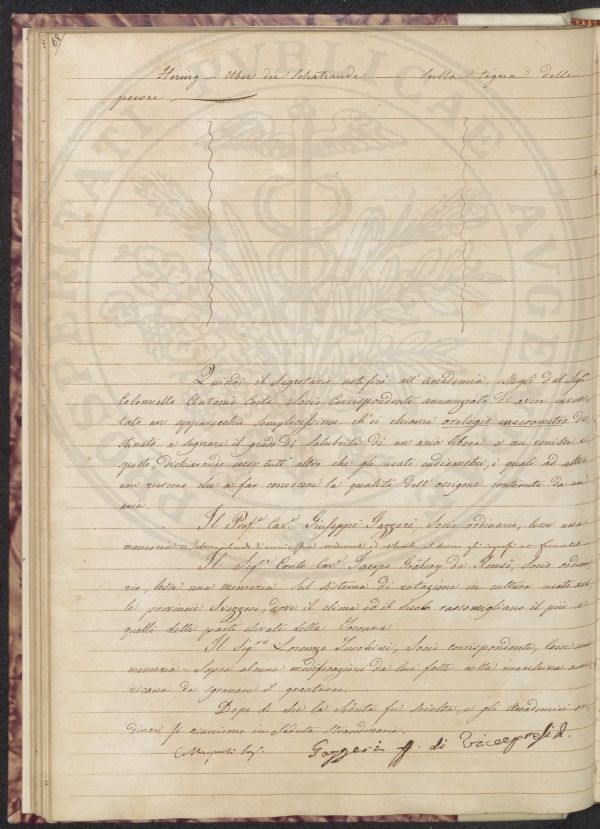 68
Hering – Uber die Schafraude – Sulla tigna delle
pecore
Quindi il Segretario notificò all'Accademia, dal Sigr
Colonnello Antonio Costa Socio Corrispondente annunziato di avere inven
tato un apparecchio semplicissimo ch'ei chiama orologio de
stinato a segnare il grado di salubrità di un aria libera o un
, dichiarando esser tutt'altro che gli usati eudiometri, i quali ad altro
non riescono che a far conoscere la qualità dell'ossigene contenuto da un
aria.
Il Profre Cavre Giuseppe Gazzeri Socio ordinario, lesse una
memoria
Il Sigre Conte Cavre Jacopo Gråberg da Hemsö, Socio ordina
rio, lesse una memoria sul sistema di rotazione in cultura usato nel
le provincie Svezzesi, dove il clima ed il suolo rassomigliano il più a
quelli delle parti elevate della Toscana
Il Sigre Lorenzo Turchini, Socio corrispondente, lesse una
memoria – Sopra alcune modificazioni da lui fatte alla macchina ame
ricana da sgranare il granturco.
Dopo di che la Seduta fu sciolta, e gli Accademici or
dinari si riunirono in Seduta straordinaria.
Gazzeri ff. di Vicepresid.